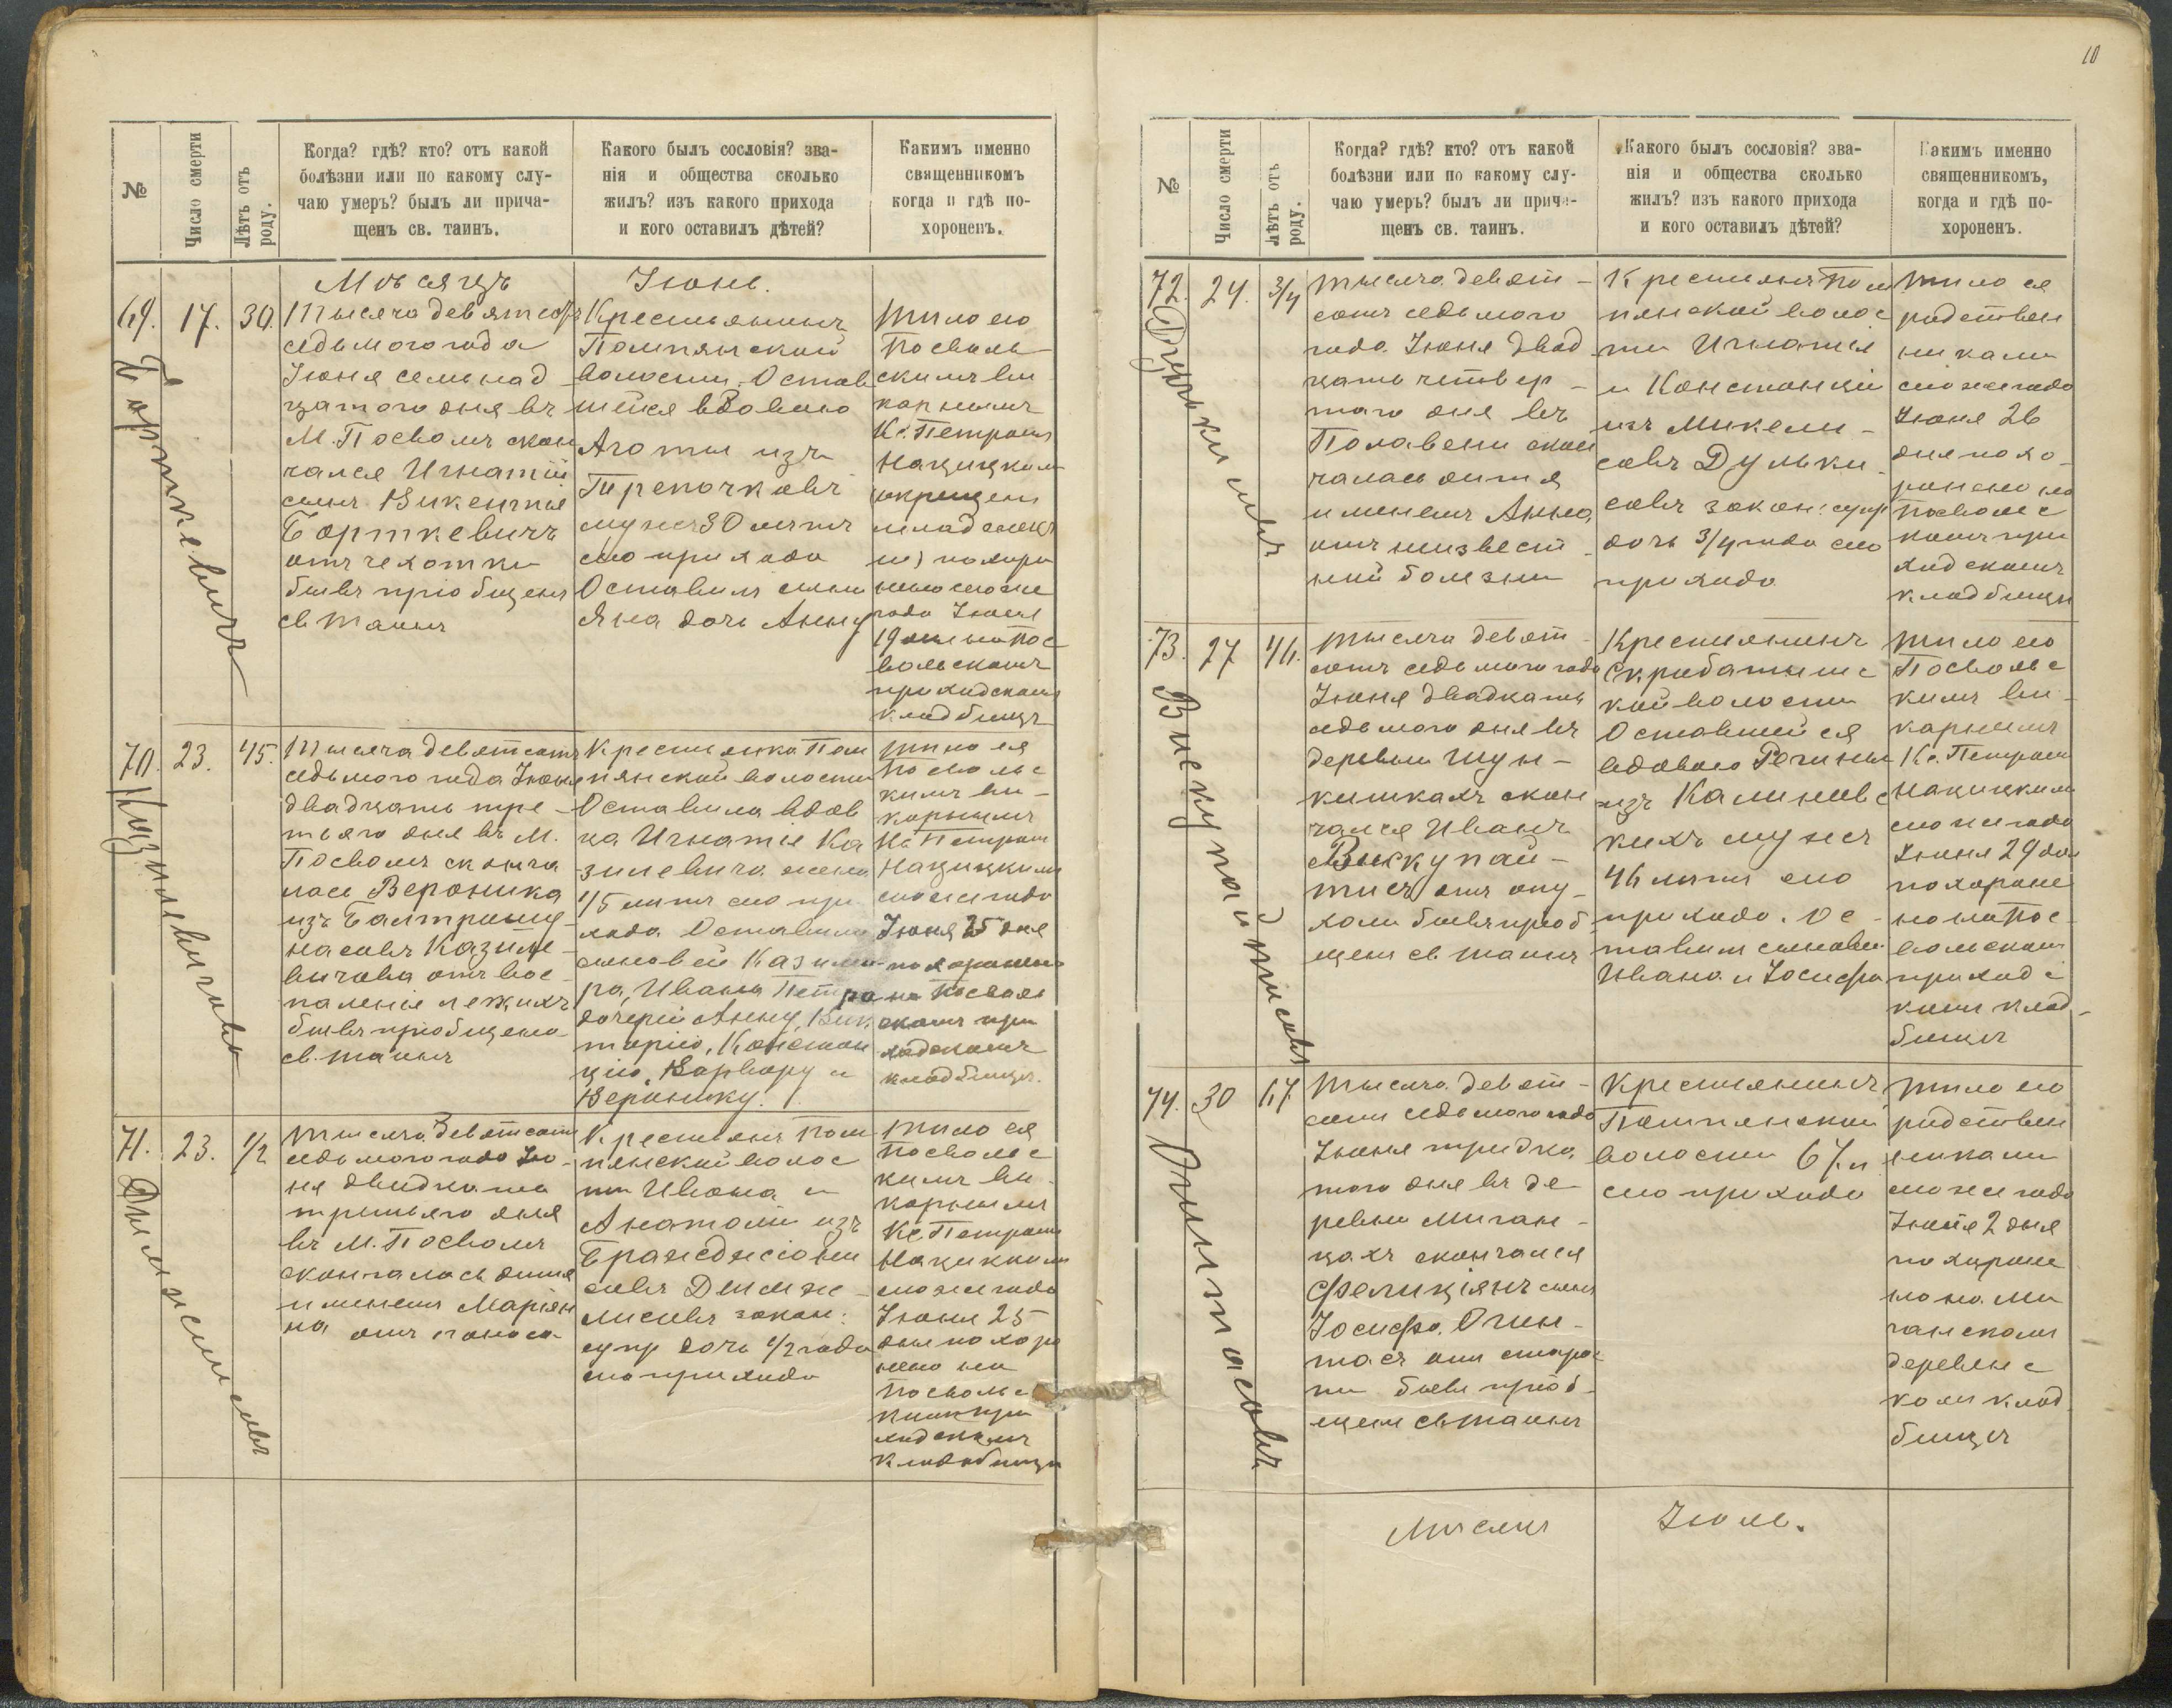 10
№
Число смерти
Лѣтъ отъ
роду.
Когда? гдѣ? кто? отъ какой
болѣзни или по какому слу-
чаю умеръ? былъ ли прича-
щенъ св. таинъ.
Какого былъ сословія? зва-
нія и общества сколько
жилъ? изъ какого прихода
и кого оставилъ дѣтей?
Какимъ именно
священникомъ
когда и гдѣ по-
хороненъ.
Мѣсяцъ
Іюнь.
69.
Борткевичъ
17.
30.
Тысяча девятсотъ
седьмого года
Іюня семьнад
цатого дня въ
М. Посволъ скон
чался Игнатій
сынъ Викентія
Борткевичъ
отъ чехотки
бывъ пріобщенъ
св таинъ
Крестьянинъ
Помпянской
волости. Остав
шейся вдовою
Аготы изъ
Трепочковъ
мужъ 30 летъ
сего прихода
Оставилъ сына
Яна дочь Анну
тело его
Посволь
скимъ ви
карнымъ
Кс. Петромъ
Нацицкимъ
младенецъ
похоро
нено сего же
года Іюня
19 дня на Пос
вольскомъ
приходскомъ
кладбищѣ
70.
Казилевичова
23.
45.
Тысяча девятсотъ
седьмого года Іюня
двадцать тре-
тьяго дня въ М.
Посволъ сконча
лась Вероника
изъ Балтрыш
насовъ Казиле-
вичова отъ вос-
паленія лежихъ
бывъ пріобщена
св. таинъ
Крестьянка Пом
пянской волости
Оставила вдов
ца Игнатія Ка
зилевича жена
45 летъ сего при
хода Оставила
сыновей Казими-
ра, Ивана Петра
дочерей Анну, Вик
торію, Констан
цію, Варвару и
Веронику.
тело ея
Посвольс
кимъ ви-
карнымъ
Кс Петромъ
Нацицкимъ
сего же года
Іюня 25 дня
похоронено
на Посволь
скомъ при
ходскомъ
кладбищѣ.
71.
23.
1/2
Тысяча девятсотъ
седьмого года Ію-
ня двадцать
третьяго дня
въ М. Посволъ
скончалась дитя
именемъ Маріян
на отъ поноса
Крестьянъ Пом
пянской волос
ти Ивана и
Анатоліи изъ
совъ закон:
супр дочь 1/2 года
сего прихода
тело ея
Посвольс
кимъ ви
карнымъ
Кс. Петромъ
Нацицкимъ
сего же года
Іюня 25
дня похоро
нено на
Посвольс
комъ при
ходскомъ
кладбищѣ
№
Число смерти
Лѣтъ отъ
роду.
Когда? гдѣ? кто? отъ какой
болѣзни или по какому слу-
чаю умеръ? былъ ли прича-
щенъ св. таинъ.
Какого былъ сословія? зва-
нія и общества сколько
жилъ? изъ какого прихода
и кого оставилъ дѣтей?
Какимъ именно
священникомъ,
когда и гдѣ по-
хороненъ.
72.
24.
3/4
Тысяча девят-
сотъ седьмого
года Іюня двад
цать четвер-
того дня въ
Полавени скон
чалась дитя
именемъ Анна
отъ неизвест-
ной болезни
Крестьянъ Пом
пянской волос
ти Игнатія
и Констанціи
изъ Микели-
совъ Дульки-
совъ закон: супр
дочь 3/4 года сего
прихода
тело ея
родствен
никами
сего же года
Іюня 26
дня похо-
ронено на
Посвольс
комъ при
ходскомъ
кладбищѣ
73.
Вискупайтисовъ
27
46.
Тысяча девят-
сотъ седьмого года
Іюня двадцать
седьмого дня въ
деревни Шун-
кишкахъ скон
чался Иванъ
Вискупай-
тисъ отъ опу-
холи бывъ пріоб
щенъ св таинъ
Крестьянинъ
Скрибатыше
кой волости
Оставшейся
вдовою Регины
изъ Калиновс
кихъ мужъ
46 летъ сего
прихода. Ос-
тавилъ сыновей
Ивана и Іосифа
тело его
Посвольс
кимъ ви-
карнымъ
Кс. Петромъ
Нацицкимъ
сего же года
Іюня 29 дня
похороне
но на Пос
вольскомъ
приходс
комъ клад-
бищѣ
74.
Огинтасовъ
30
67.
Тысяча девят-
сотъ седьмого года
Іюня тридца
того дня въ де
ревни Миган-
цахъ скончался
Фелиціянъ сынъ
Іосифа Огин-
тасъ отъ старос
ти бывъ пріоб-
щенъ св таинъ
Крестьянинъ
Помпянской
волости 67 л
сего прихода
тело его
родствен
никами
сего же года
Іюня 2 дня
похороне
но на Ми
ганскомъ
деревенс
комъ клад
бищѣ
Мѣсяцъ
Іюль.